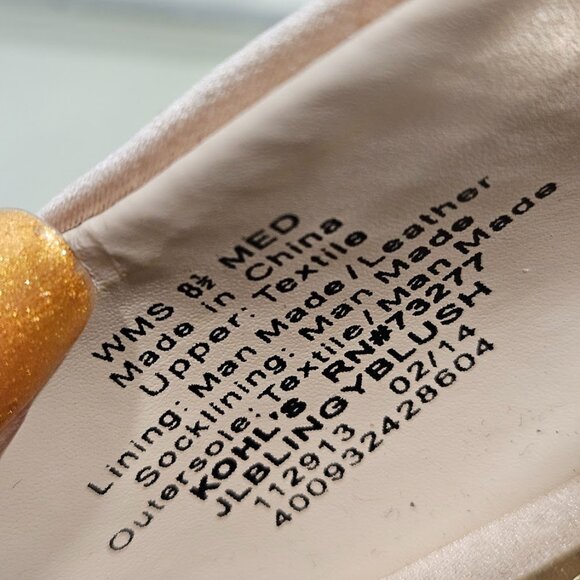 WMS 8½ MED
Made in China
Upper: Textile
Lining: Man Made/Leather
Socklining: Man Made
Outersole: Textile/Man Made
KOHL'S RN#73277
JLBLINGYBLUSH
112913 02/14
400932428604